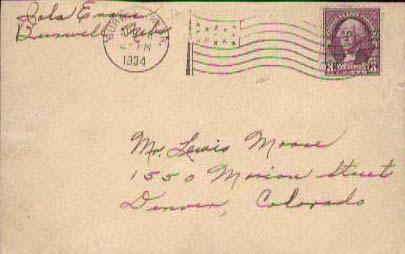 Lola Evans
Burwell, Nebr.
1934
3 3
Mr. Lewis Moore
1550 Marion Street
Denver, Colorado